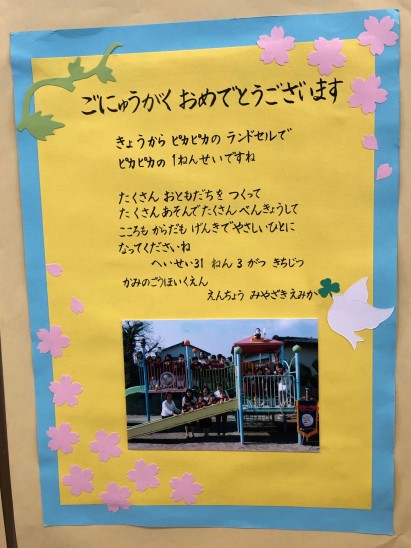 ごにゅうがく おめでとうございます
きょうから ピカピカの ランドセルで
ピカピカの 1ねんせいですね
たくさん おともだちを つくって
たくさんあそんでたくさん べんきょうして
こころも からだも げんきでやさしいひとに
なってくださいね
へいせい31 ねん 3 がつ きちじつ
かみのごうほいくえん
えんちょう みやざきえみか